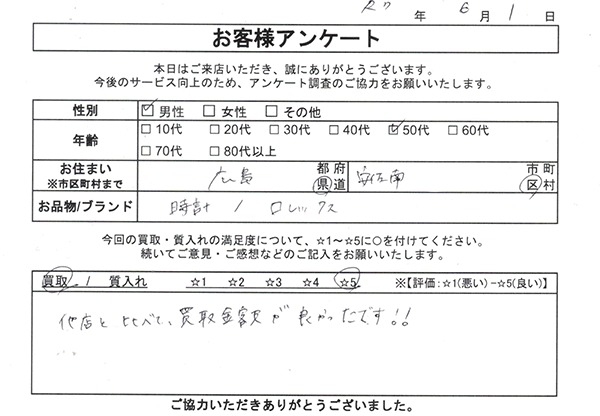 R7 年 6 月 1 日
お客様アンケート
本日はご来店いただき、誠にありがとうございます。
今後のサービス向上のため、アンケート調査のご協力をお願いいたします。
性別 ☑男性 □女性 □その他
年齢 □10代 □20代 □30代 □40代 ☑50代 □60代
□70代 □80代以上
お住まい
※市区町村まで 広島 都府県道 安佐南 市町区村
お品物/ブランド 時計 / ロレックス
今回の買取・質入れの満足度について、☆1～☆5に○を付けてください。
続いてご意見・ご感想などのご記入をお願いいたします。
買取 / 質入れ ☆1 ☆2 ☆3 ☆4 ☆5 ※【評価:☆1(悪い)−☆5(良い)】
他店と比べて、買取金額が良かったです!!
ご協力いただきありがとうございました。